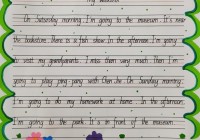 my weekend
On Saturday morning I'm going to the museum. It's near
the bookstore. There is a fish show. In the afternoon, I'm going
to visit my grandparents. I miss them very much. Then I'm
going to play ping pong with Chen Jie. On Sunday morning,
I'm going to do my homework at home. In the afternoon,
I'm going to the park. It is in front of the museum.